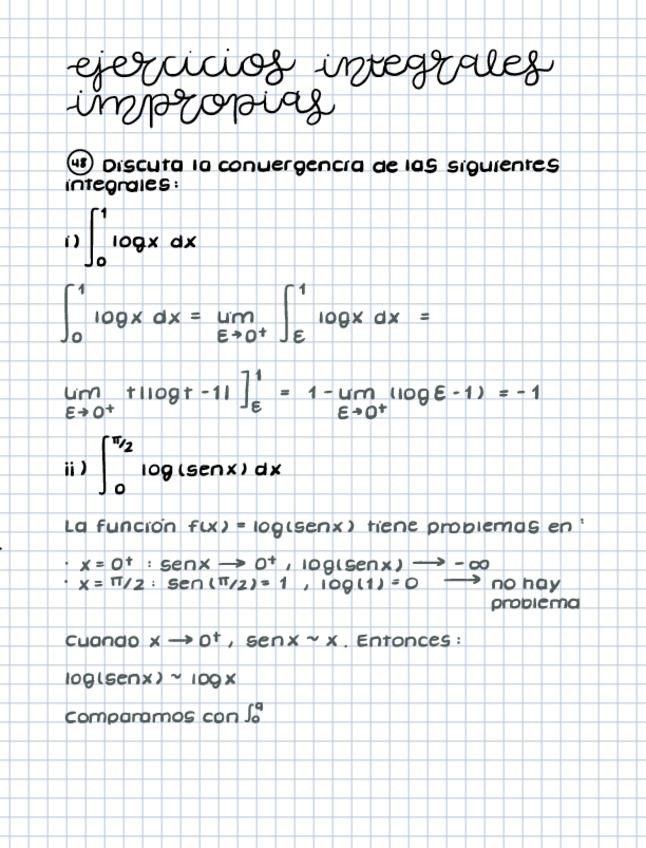 ejercicios integrales
impropias
48 Discuta la convergencia de las siguientes
integrales:
i) ∫₀¹ logx dx
∫₀¹ logx dx = lim_{ε→0⁺} ∫_ε¹ logx dx =
lim_{ε→0⁺} t|logt -1| ]_ε¹ = 1 - lim_{ε→0⁺} (logε -1) = -1
ii) ∫₀^{π/2} log(senx) dx
La función f(x) = log(senx) tiene problemas en :
· x = 0⁺ : senx → 0⁺ , log(senx) → -∞
· x = π/2 : sen(π/2) = 1 , log(1) = 0 → no hay
problema
Cuando x → 0⁺, senx ~ x. Entonces:
log(senx) ~ logx
Comparamos con ∫₀ᵃ